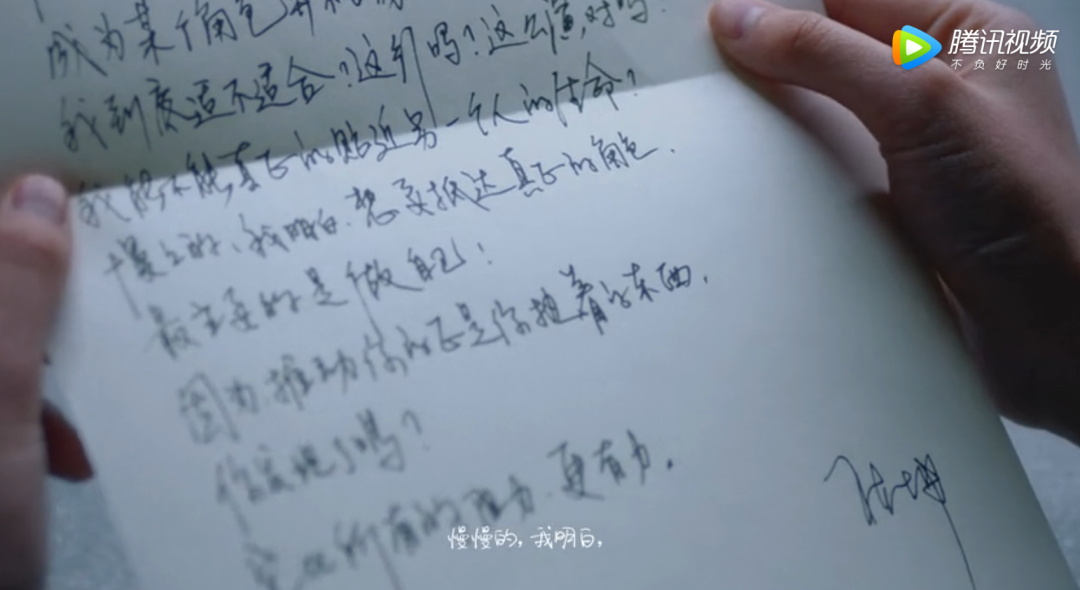 腾讯视频
不负好时光
成为某个角色
我到底适不适合?这行吗?这么演,对吗?
我能不能真正的贴近另一个人的生命?
慢慢的,我明白,想要抵达真正的角色,
最重要的是做自己!
因为推动你的正是你独有的东西,
你发现了吗?
它比所有的阻力,更有力。
陈坤
慢慢的,我明白,